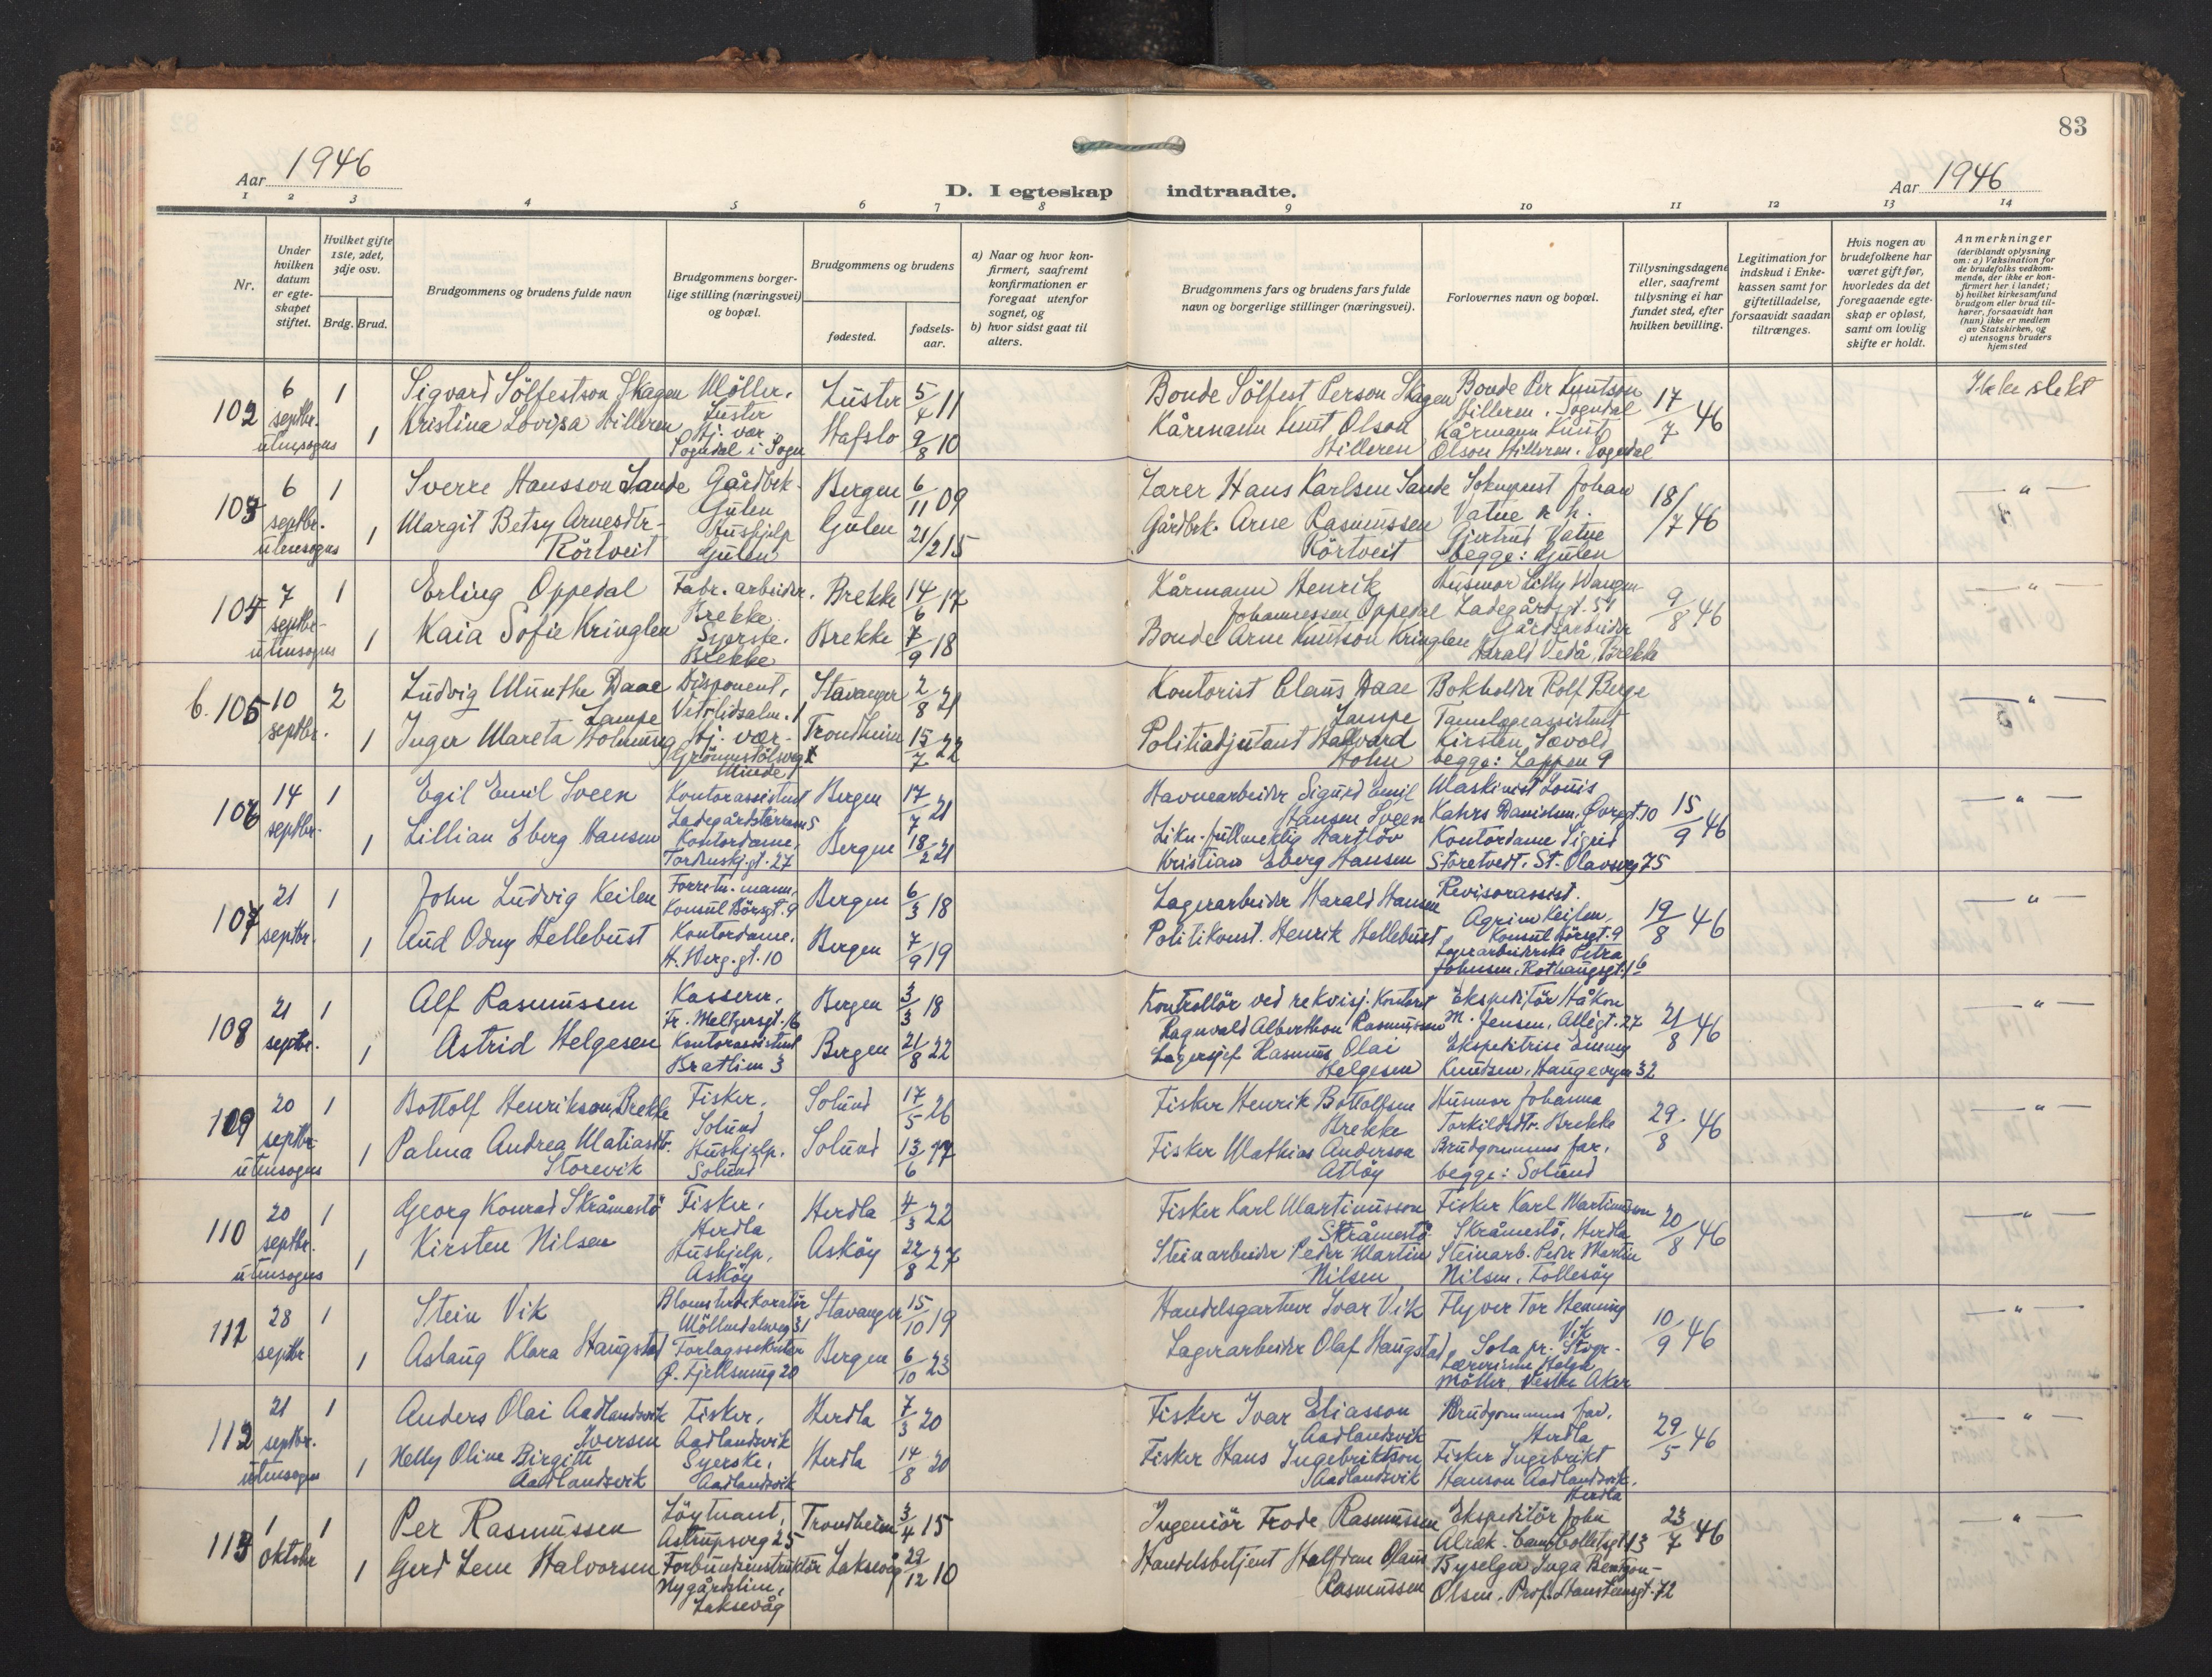 83
Aar 1946
D. I egteskap indtraadte.
Aar 1946
1 2 3 4 5 6 7 8 9 10 11 12 13 14
Nr.
Under hvilken datum er egte-skapet stiftet.
Hvilket gifte 1ste, 2det, 3dje osv.
Brdg. Brud.
Brudgommens og brudens fulde navn
Brudgommens borger-lige stilling (næringsvei) og bopæl.
Brudgommens og brudens
fødested.
fødsels-aar.
a) Naar og hvor kon-firmert, saafremt konfirmationen er foregaat utenfor sognet, og
b) hvor sidst gaat til alters.
Brudgommens fars og brudens fars fulde navn og borgerlige stillinger (næringsvei).
Forlovernes navn og bopæl.
Tillysningsdagene eller, saafremt tillysning ei har fundet sted, efter hvilken bevilling.
Legitimation for indskud i Enke-kassen samt for giftetilladelse, forsaavidt saadan tiltrænges.
Hvis nogen av brudefolkene har været gift før, hvorledes da det foregaaende egte-skap er opløst, samt om lovlig skifte er holdt.
Anmerkninger
(deriblandt oplysning om: a) Vaksination for de brudefolks vedkom-mende, der ikke er kon-firmert her i landet; b) hvilket kirkesamfund brudgom eller brud til-hører, forsaavidt han (hun) ikke er medlem av Statskirken, og c) utensogns bruders hjemsted
102 6 septbr. utensogns 1 1
Sigvard Sölfestson Skagen
Kristina Lovisa Hilleren
Möller, Luster
Hj. vær. Sogndal i Sogn
Luster 5/4 11
Hafslo 9/8 10
Bonde Sölfest Person Skagen
Kårmann Knut Olson Hilleren
Bonde Per Knutson Hilleren, Sogndal
Kårmann Knut Olson Hilleren, Sogndal
17/7 46
Ikke slekt
103 6 septbr. utensogns 1 1
Sverre Hansson Sande
Margit Betsy Arnesdtr. Rörtveit
Gårdbrk. Gulen
Hushjelp Gulen
Bergen 6/11 09
Gulen 21/2 15
Lærer Hans Karlsen Sande
Gårdbrk. Arne Rasmussen Rörtveit
Sokneprest Johan Vatne
Gjertrud Vatne
begge: Gulen
18/7 46
— " —
104 7 septbr. utensogns 1 1
Erling Oppedal
Kaia Sofie Kringlen
Fabr. arbeider, Brekke
Syerske, Brekke
Brekke 14/6 17
Brekke 7/9 18
Kårmann Henrik Johannessen Oppedal
Bonde Arne Knutson Kringlen
Husmor Lilly Wangen Ladegårdsgt. 51
Gårdsarbeider Harald Vedå, Brekke
9/8 46
— " —
b. 105 10 septbr. 2 1
Ludvig Munthe Daae Lampe
Inger Mareta Holm
Disponent, Vitrlidsalm. 1
Hj. vær. Minde
Stavanger 2/8 21
Trondheim 15/7 22
Kontorist Claus Daae Lampe
Politiadjutant Hallvard Holm
Bokholder Rolf Berge
Tannlegeassistent Kirsten Sævold
begge: Lappen 9
— " —
106 14 septbr. 1 1
Egil Emil Sveen
Lillian Eberg Hansen
Kontorassistent Ladegårdsterrassen 5
Kontordame, Tordenskj. gt. 27
Bergen 17/7 21
Bergen 18/2 21
Havnearbeider Sigurd Emil Hansen Sveen
Likn. fullmektig Hartlöv Kristian Eberg Hansen
Maskinist Louis Kahrs Danielsen, Øvregt. 10
Kontordame Sigrid Storetvedt, St. Olavsveg 75
15/9 46
— " —
107 21 septbr. 1 1
John Ludvig Keilen
Aud Odny Hellebust
Forretn. mann, Konsul Börsgt. 9
Kontordame, H. Werg. gt. 10
Bergen 6/3 18
Bergen 7/9 19
Lagerarbeider Harald Hansen
Politikonst. Henrik Hellebust
Revisorassist. Agrim Keilen, Konsul Börsgt. 9
Lagerarbeiderske Petra Johnsen, Rothaugsgt. 16
19/8 46
— " —
108 21 septbr. 1 1
Alf Rasmussen
Astrid Helgesen
Kasserer, Fr. Meltzersgt. 16
Kontorassistent Bratlien 3
Bergen 3/3 18
Bergen 21/8 22
Kontrollör ved rekvisj. kontoret Ragnvald Alberthon Rasmussen
Lagersjef Rasmus Olai Helgesen
Ekspeditör Håkon M. Jensen, Allégt. 27
Ekspeditrise Emmy Knudsen, Haugevegen 32
21/8 46
— " —
109 20 septbr. utensogns 1 1
Bottolf Henrikson Brekke
Palma Andrea Matiasdtr. Storevik
Fisker, Solund
Hushjelp, Solund
Solund 17/5 26
Solund 13/6 27
Fisker Henrik Bottolfsen Brekke
Fisker Mathias Anderson Atlöy
Husmor Johanna Torkildsdtr. Brekke
Brudgommens far,
begge: Solund
29/8 46
— " —
110 20 septbr. utensogns 1 1
Georg Konrad Skråmestö
Kirsten Nilsen
Fisker, Herdla
Hushjelp, Asköy
Herdla 4/3 22
Asköy 22/8 27
Fisker Karl Martinusson Skråmestö
Steinarbeider Peder Martin Nilsen
Fisker Karl Martinusson Skråmestö, Herdla
Steinarb. Peder Martin Nilsen, Follesöy
20/8 46
— " —
111 28 septbr. 1 1
Stein Vik
Aslaug Klara Haugstad
Blomsterdekoratör Möllendalsveg 31
Forlagssekretær Ø. Fjellsmug 20
Stavanger 15/10 19
Bergen 6/10 23
Handelsgartner Ivar Vik
Lagerarbeider Olaf Haugstad
Flyver Tor Henning Vik Sola pr. Stvgr.
Lærerinne Helga Möller, Vestre Aker
10/9 46
— " —
112 21 septbr. utensogns 1 1
Anders Olai Aadlandsvik Iversen
Nelly Oline Birgitte Aadlandsvik
Fisker, Aadlandsvik
Syerske, Aadlandsvik
Herdla 7/3 20
Herdla 14/8 20
Fisker Ivar Eliasson Aadlandsvik
Fisker Hans Ingebriktson Aadlandsvik
Brudgommens far, Herdla
Fisker Ingebrikt Hanson Aadlandsvik, Herdla
29/5 46
— " —
113 1 oktobr 1 1
Per Rasmussen
Gerd Lem Halvorsen
Löytnant, Astrupsveg 25
Forbundsinstruktör Nygårdslien, Laksevåg
Trondheim 3/4 15
Laksevåg 22/12 10
Ingeniör Frode Rasmussen
Handelsbetjent Halfdan Olaus Rasmussen
Ekspeditör John Alræk. Cam. Colletsgt. 13
Byselger Inga Bentzon-Olsen, Prof. Hansteensgt. 72
23/7 46
— " —